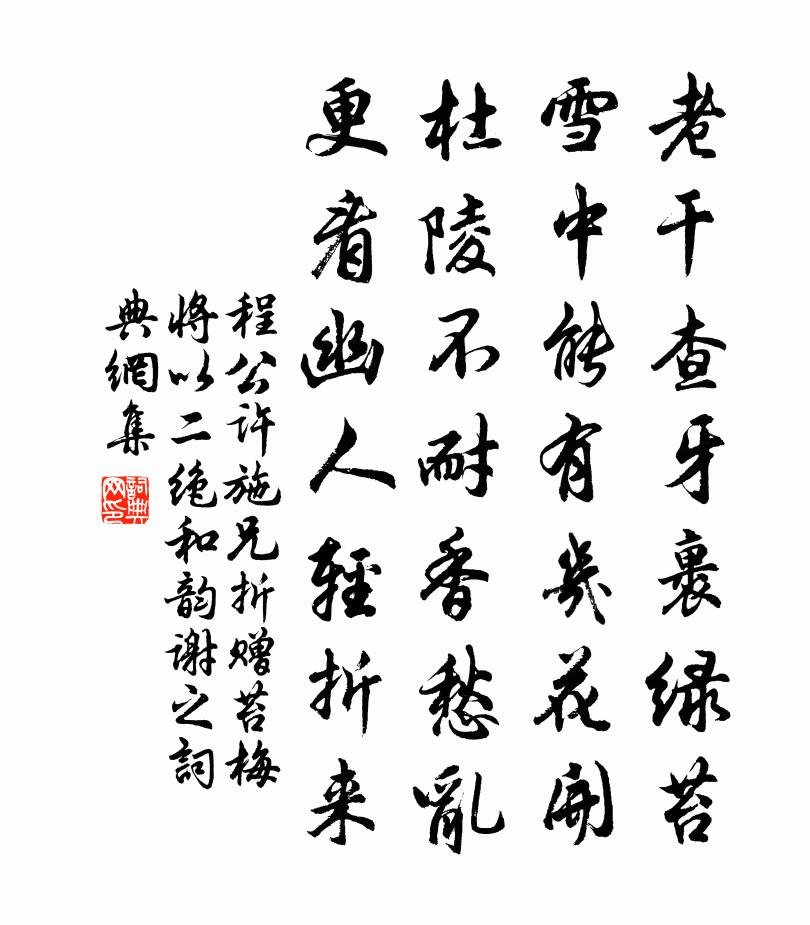 老干查牙裹绿苔
雪中能有幾花開
杜陵不耐香愁亂
更看幽人輕折来
程公许施兄折赠苔梅
將以二绝和韵谢之詞
典網集
詞典网印